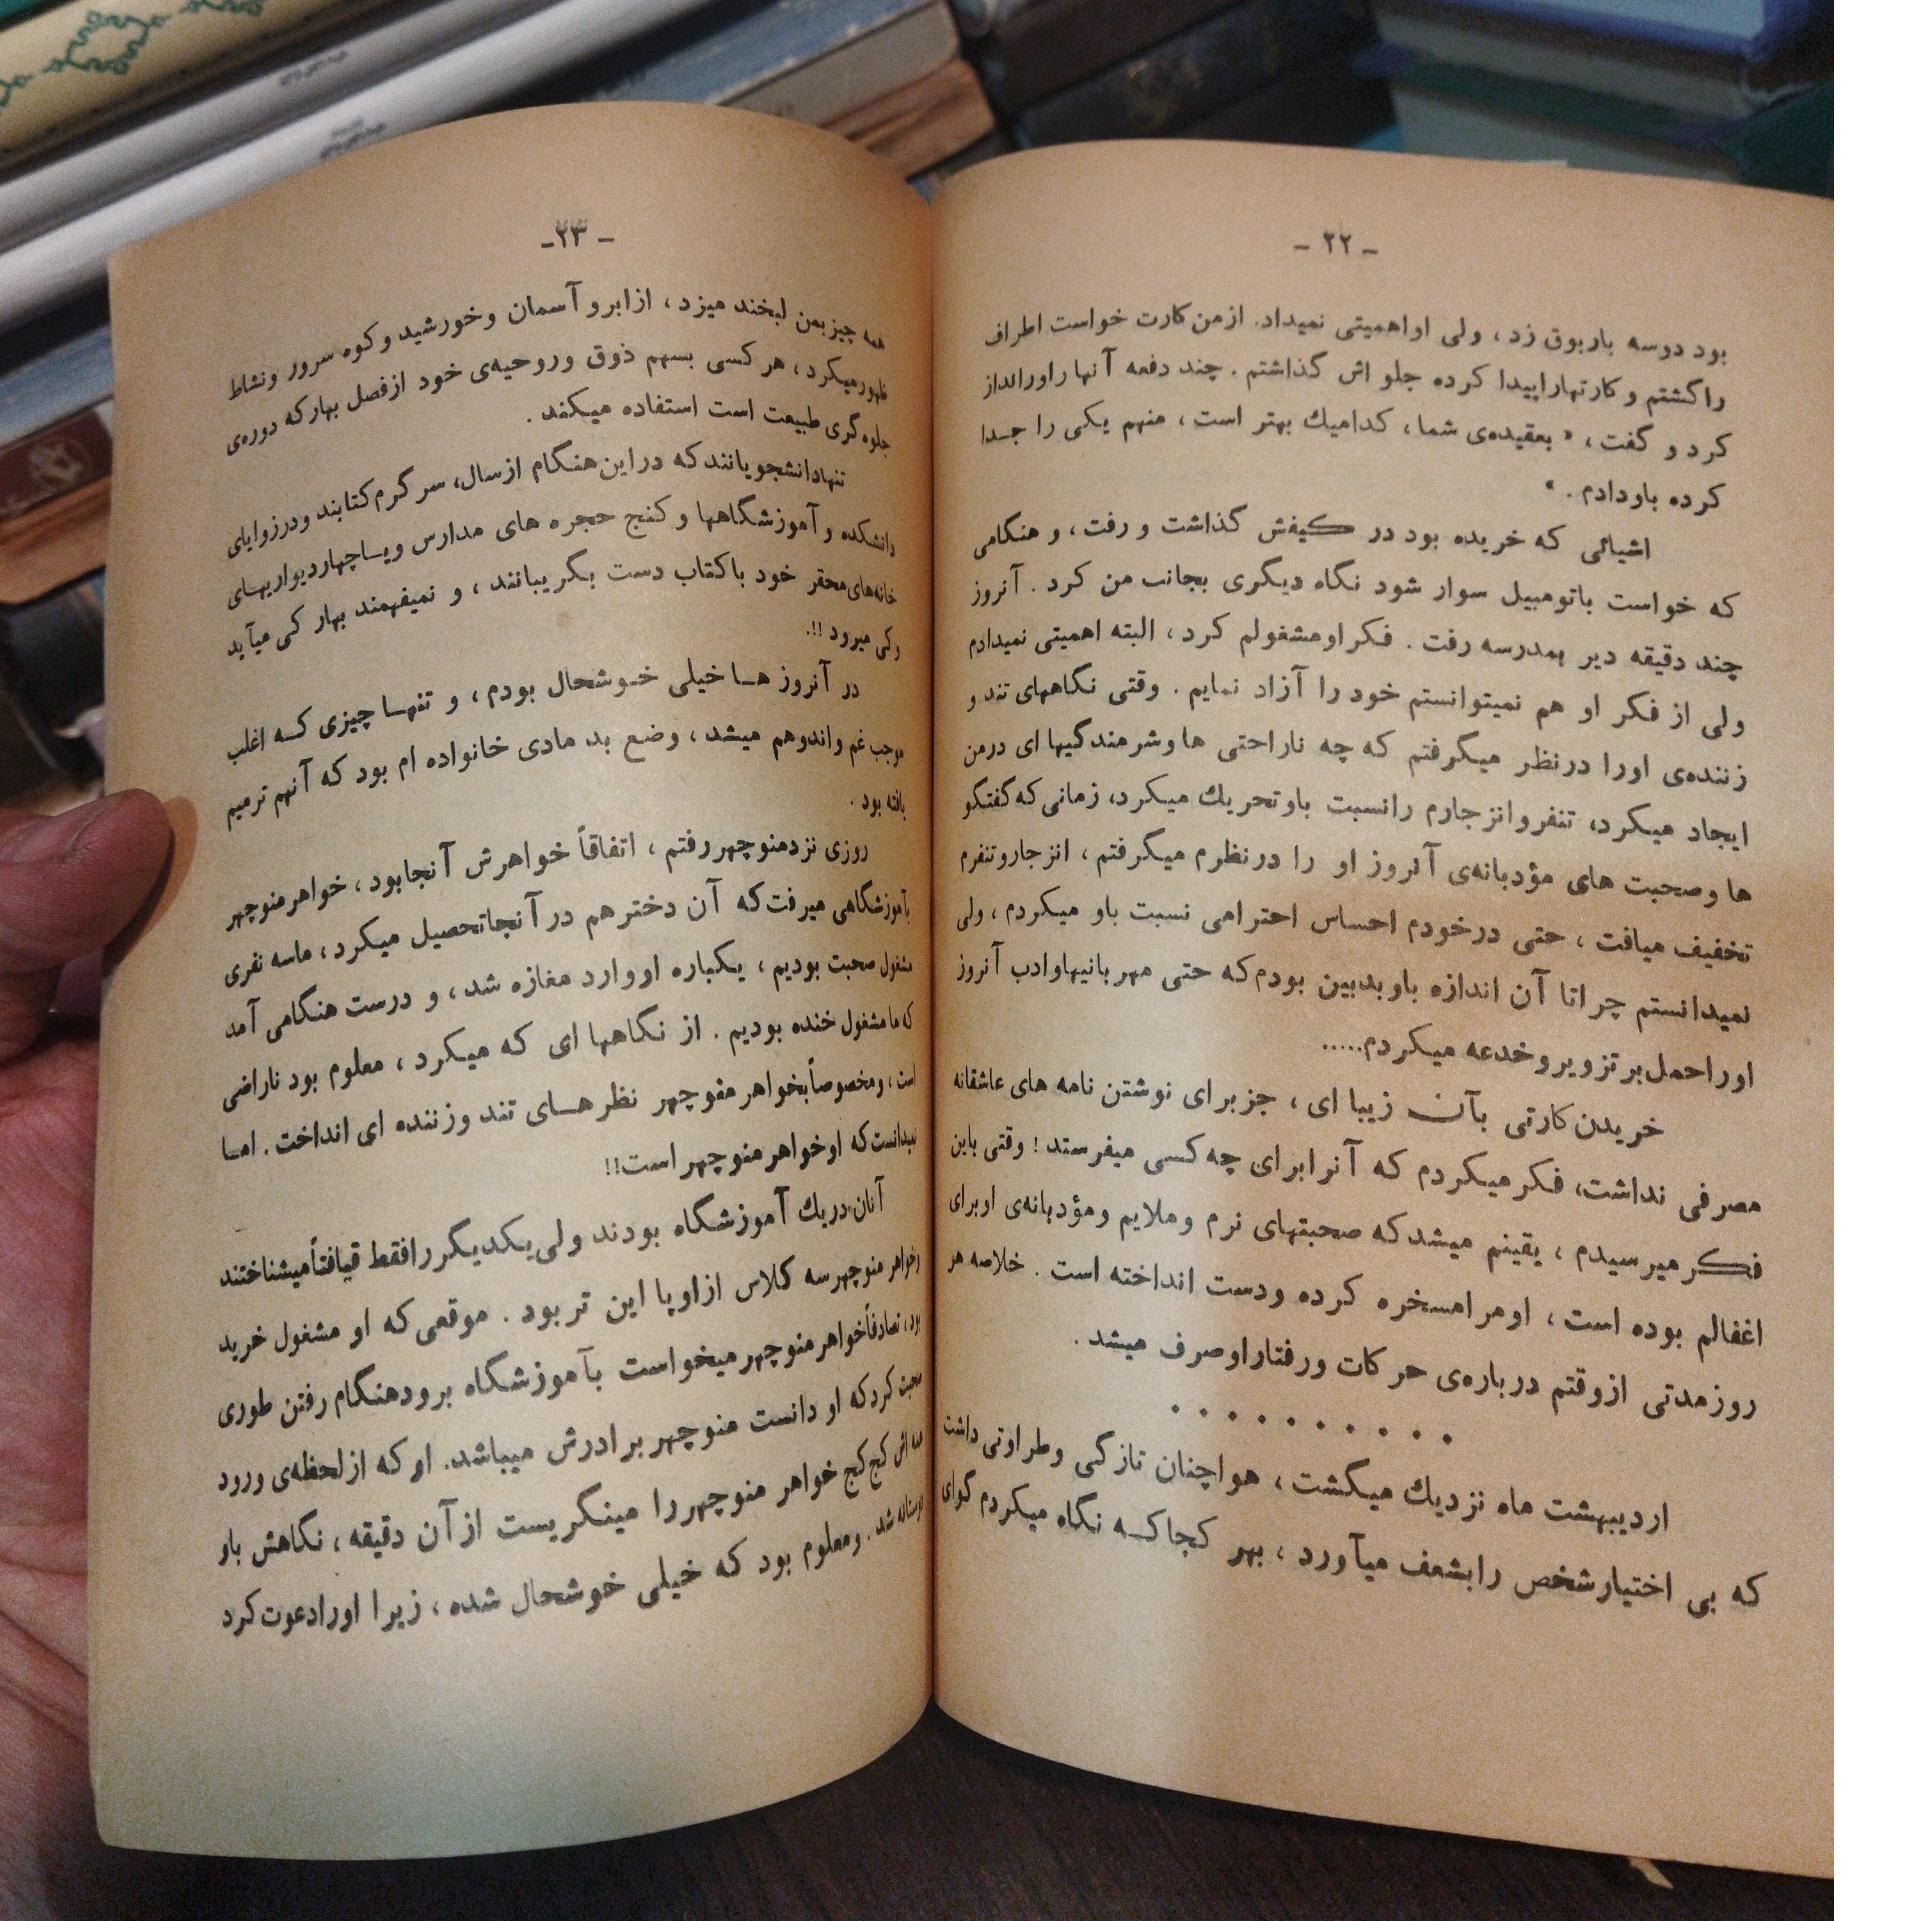 - ۲۲ -
بود دوسه باربوق زد ، ولی اواهمیتی نمیداد. ازمن کارت خواست اطراف
راگشتم و کارتهاراپیدا کرده جلو اش گذاشتم . چند دفعه آنها راورانداز
کرد و گفت ، « بعقیده‌ی شما ، کدامیك بهتر است ، منهم یکی را جـدا
کرده باودادم . »
اشیائی که خریده بود در کیفش گذاشت و رفت ، و هنگامی
که خواست باتومبیل سوار شود نگاه دیگری بجانب من کرد . آنروز
چند دقیقه دیر بمدرسه رفت . فکراومشغولم کرد ، البته اهمیتی نمیدادم
ولی از فکر او هم نمیتوانستم خود را آزاد نمایم . وقتی نگاههای تند و
زننده‌ی اورا درنظر میگرفتم که چه ناراحتی ها وشرمندگیها ای درمن
ایجاد میکرد، تنفروانزجارم رانسبت باوتحریك میکرد، زمانی که گفتگو
ها وصحبت های مؤدبانه‌ی آنروز او را درنظرم میگرفتم ، انزجاروتنفرم
تخفیف میافت ، حتی درخودم احساس احترامی نسبت باو میکردم ، ولی
نمیدانستم چراتا آن اندازه باوبدبین بودم که حتی مهربانیهاوادب آنروز
اوراحمل برتزویروخدعه میکردم.....
خریدن کارتی بآن زیبا ای ، جز برای نوشتن نامه های عاشقانه
مصرفی نداشت، فکرمیکردم که آنرابرای چه کسی میفرستد ! وقتی باین
فکر میرسیدم ، یقینم میشد که صحبتهای نرم وملایم ومؤدبانه‌ی اوبرای
اغفالم بوده است ، اومرامسخره کرده ودست انداخته است . خلاصه هر
روزمدتی ازوقتم درباره‌ی حرکات ورفتاراوصرف میشد .
. . . . . . . . . .
اردیبهشت ماه نزدیك میگشت ، هواچنان تازگی وطراوتی داشت
که بی اختیارشخص رابشعف میآورد ، بهر کجاکـه نگاه میکردم گوای
- ۲۳ -
همه چیزبمن لبخند میزد ، ازابرو آسمان وخورشید وکوه سرور ونشاط
ظهورمیکرد ، هر کسی بسهم ذوق وروحیه‌ی خود ازفصل بهارکه دوره‌ی
جلوه گری طبیعت است استفاده میکند .
تنهادانشجویانند که دراین هنگام ازسال، سر گرم کتابند ودرزوایای
دانشکده و آموزشگاهها و کنج حجره های مدارس ویـاچهاردیواریهـای
خانه‌های محقر خود باکتاب دست بگریبانند ، و نمیفهمند بهار کی میآید
رکی میرود !!.
در آنروز هـا خیلی خـوشحال بودم ، و تنهـا چیزی کـه اغلب
موجب غم واندوهم میشد ، وضع بد مادی خانواده ام بود که آنهم ترمیم
یافته بود .
روزی نزدمنوچهررفتم ، اتفاقاً خواهرش آنجابود ، خواهرمنوچهر
بآموزشگاهی میرفت که آن دخترهم در آنجاتحصیل میکرد ، ماسه نفری
مشغول صحبت بودیم ، یکباره اووارد مغازه شد ، و درست هنگامی آمد
که مامشغول خنده بودیم . از نگاهها ای که میکرد ، معلوم بود ناراضی
است ، ومخصوصاًبخواهر منوچهر نظرهـای تند وزننده ای انداخت . امـا
نمیدانست که اوخواهر منوچهر است!!
آنان دریك آموزشگاه بودند ولی یکدیگر رافقط قیافتاًمیشناختند
وخواهر منوچهرسه کلاس ازاوپا این تر بود . موقعی که او مشغول خرید
بود ، تصادفاًخواهر منوچهرمیخواست بآموزشگاه برودهنگام رفتن طوری
صحبت کردکه او دانست منوچهر برادرش میباشد. او که ازلحظه‌ی ورود
همه اش کج کج خواهر منوچهررا مینگریست ازآن دقیقه ، نگاهش باو
دوستانه شد . ومعلوم بود که خیلی خوشحال شده ، زیرا اورادعوت کرد